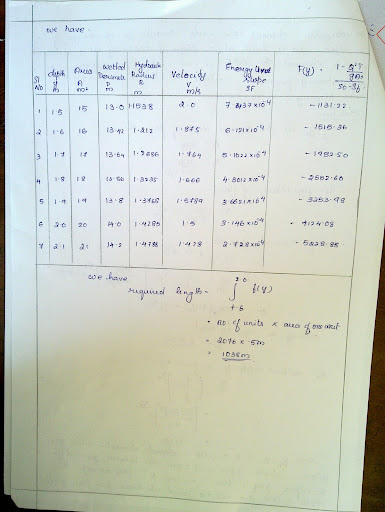 we have.
Sl No depth y m Area A m² wetted Perimeter P m Hydraulic Radius R m Velocity V m/s Energy Slope SF F(y) =
1 1.5 15 13.0 1.1538 2.0 -1131.22
2 1.6 16 13.42 1.212 1.875 6.121x10⁻⁴ -1515.36
3 1.7 17 13.64 1.2686 1.764 5.1022x10⁻⁴
4 1.8 18 1.3235 1.666 4.3012x10⁻⁴
5 1.9 19 13.8 1.3768 1.5789 -3253.98
6 2.0 20 14.0 1.4285 1.5 3.146x10⁻⁴ - 4124.08
7 2.1 21 14.2 1.4788 1.428 2.728x10⁻⁴
we have
2.0
required length = ∫ f(y)
= no. of units x area of one unit
= 2076 x .5m
= 1038m